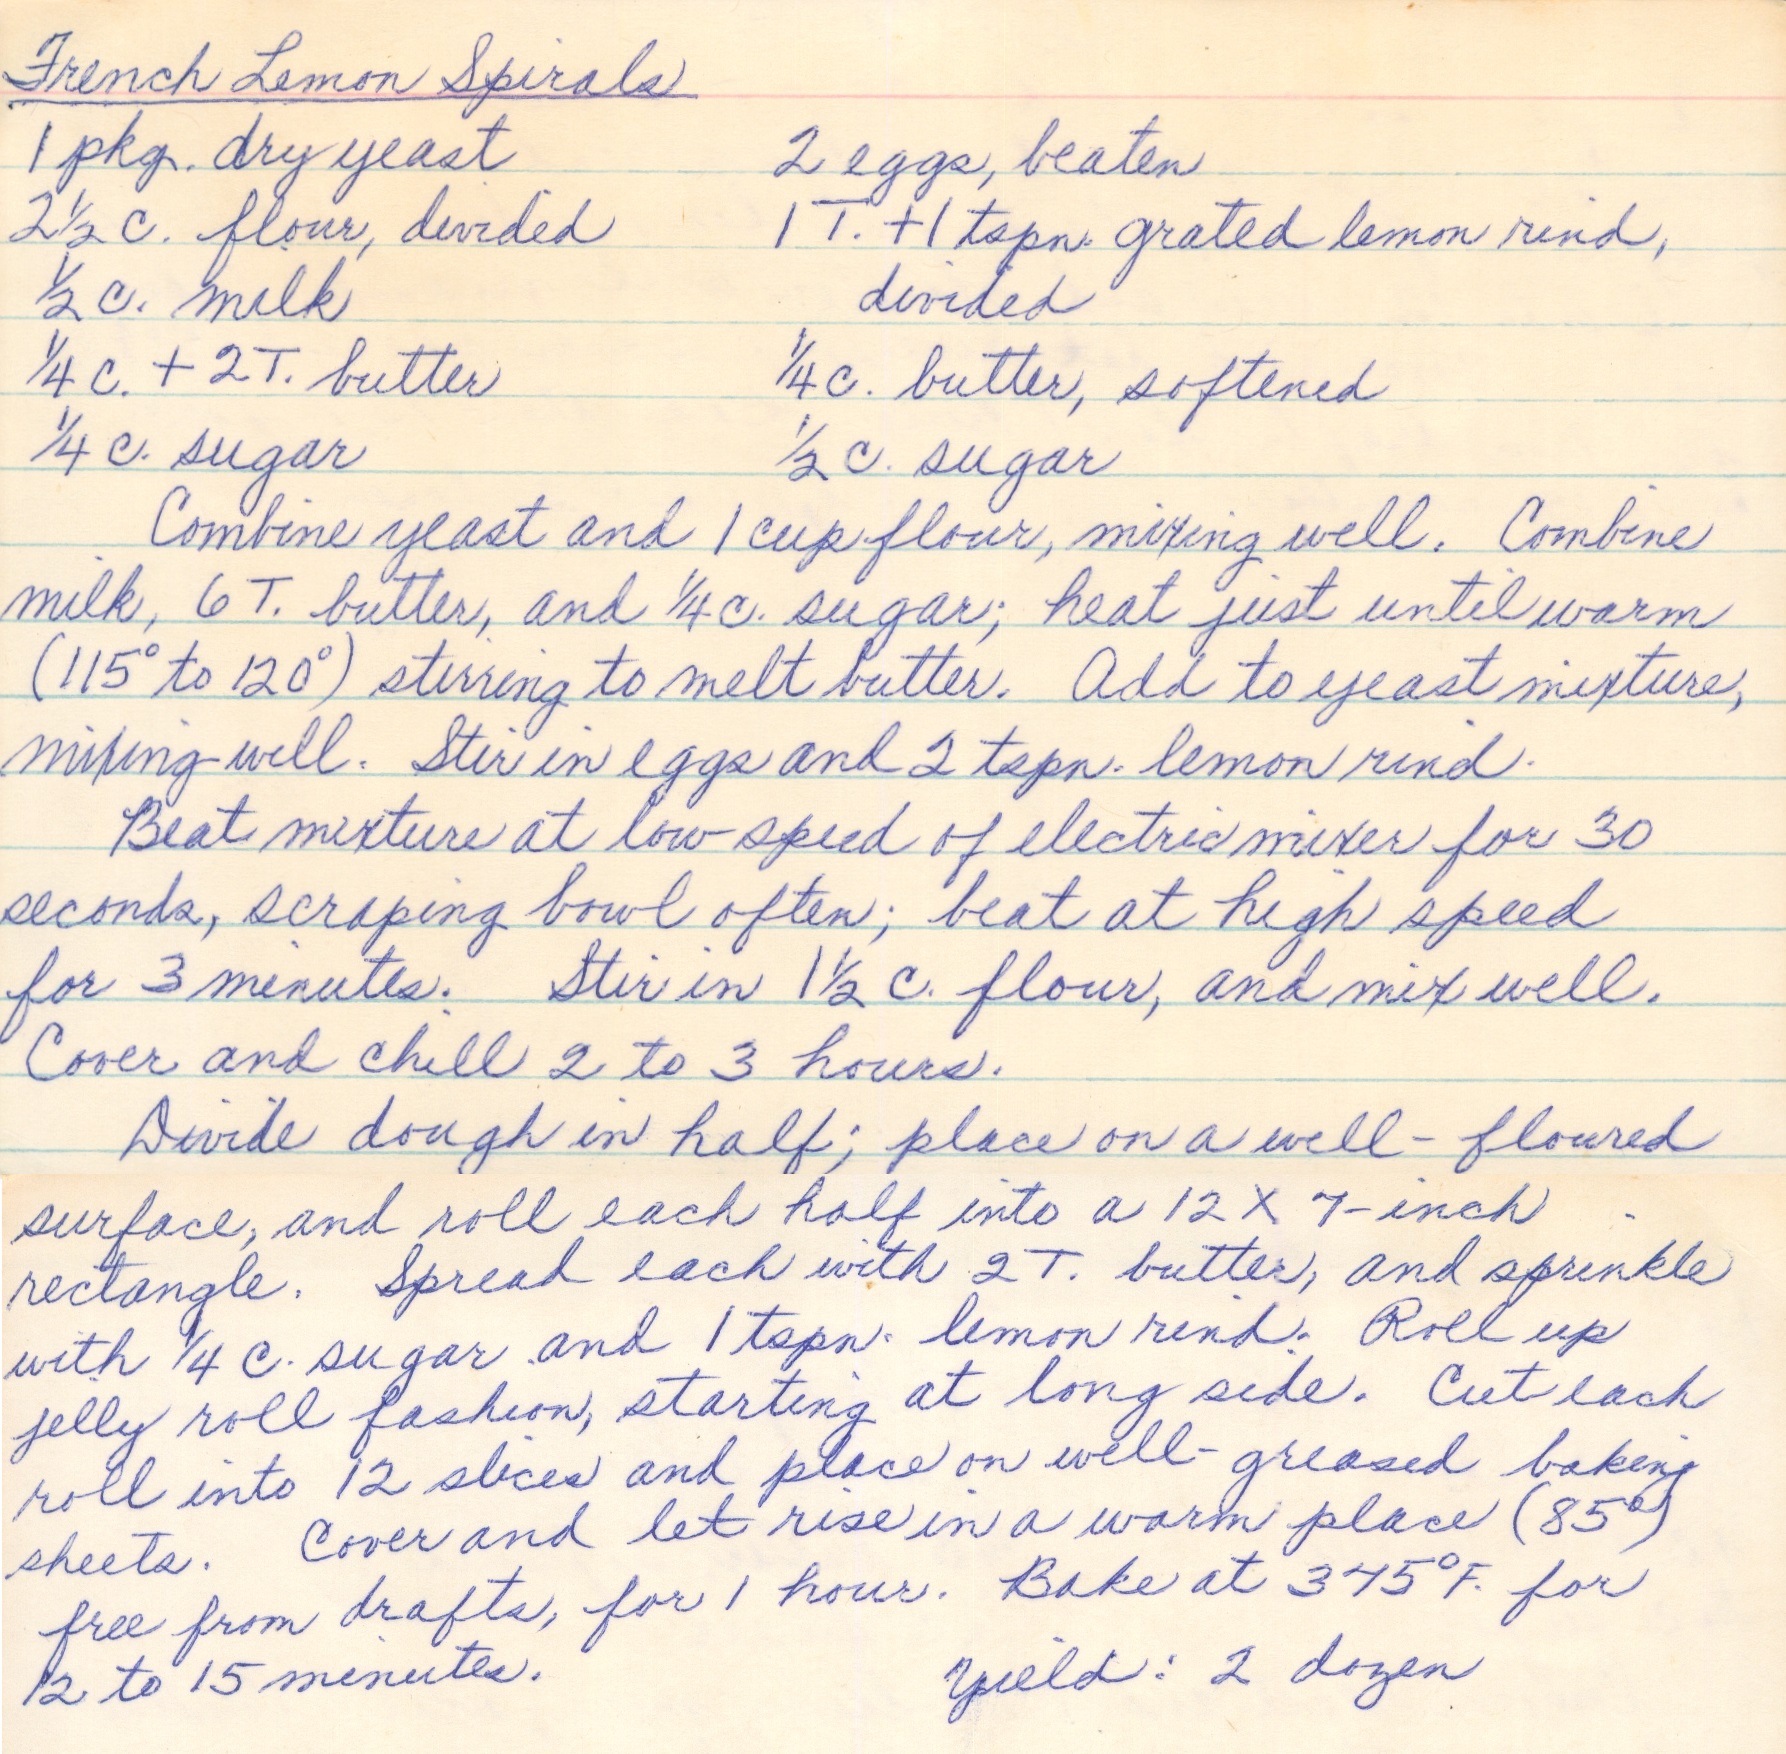 French Lemon Spirals
1 pkg. dry yeast
2½ c. flour, divided
½ c. milk
¼ c. + 2 T. butter
¼ c. sugar
2 eggs, beaten
1 T. + 1 tspn. grated lemon rind,
divided
¼ c. butter, softened
½ c. sugar
Combine yeast and 1 cup flour, mixing well. Combine
milk, 6 T. butter, and ¼ c. sugar; heat just until warm
(115° to 120°) stirring to melt butter. Add to yeast mixture,
mixing well. Stir in eggs and 2 tspn. lemon rind.
Beat mixture at low speed of electric mixer for 30
seconds, scraping bowl often; beat at high speed
for 3 minutes. Stir in 1½ c. flour, and mix well.
Cover and chill 2 to 3 hours.
Divide dough in half; place on a well-floured
surface, and roll each half into a 12 X 7-inch
rectangle. Spread each with 2 T. butter, and sprinkle
with ¼ c. sugar and 1 tspn. lemon rind. Roll up
jelly roll fashion, starting at long side. Cut each
roll into 12 slices and place on well-greased baking
sheets. Cover and let rise in a warm place (85°)
free from drafts, for 1 hour. Bake at 375°F. for
12 to 15 minutes. Yield: 2 dozen